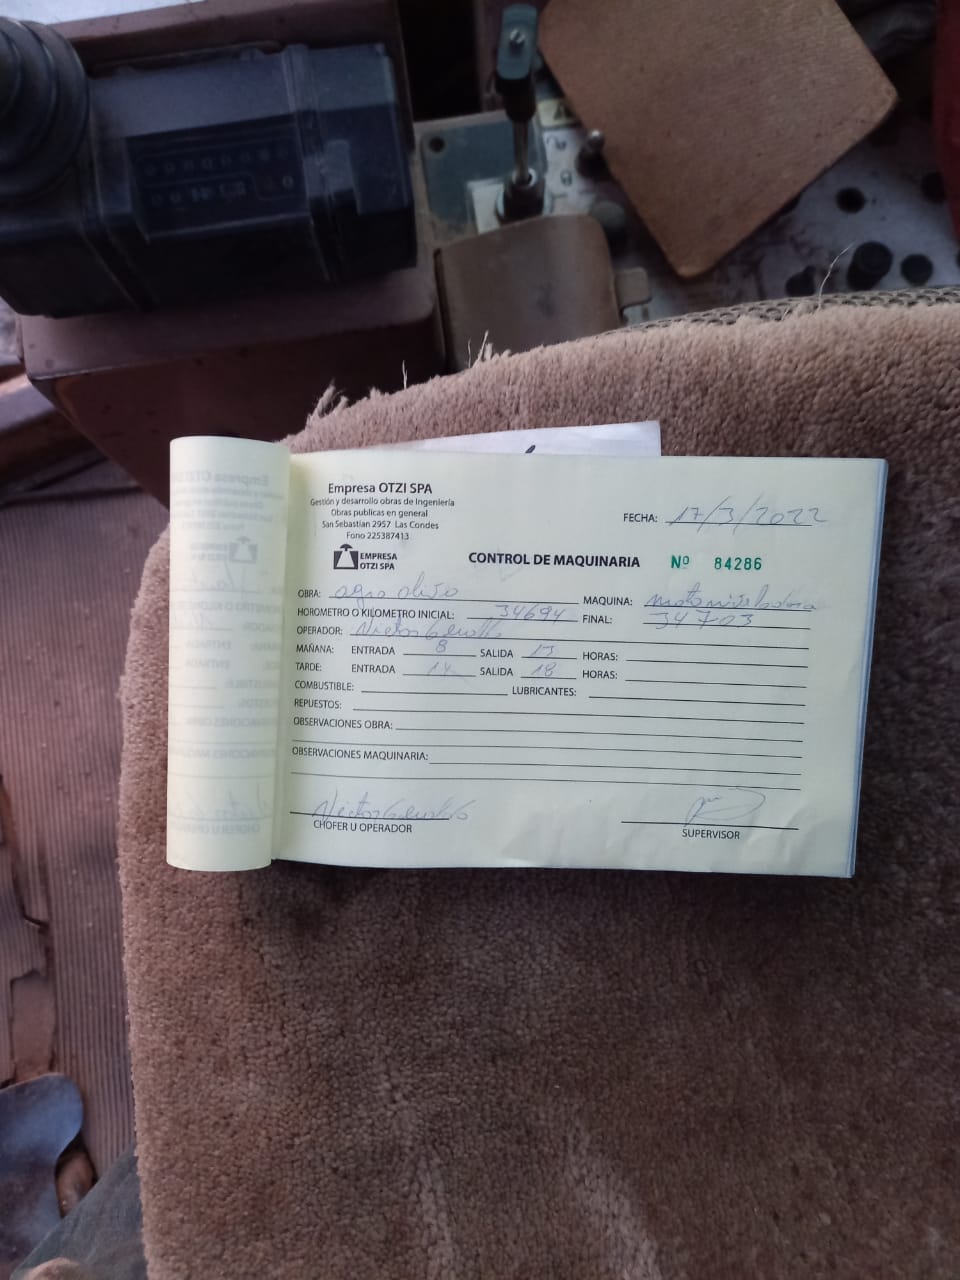 Empresa OTZI SPA
Gestión y desarrollo obras de Ingeniería
Obras publicas en general
San Sebastian 2957 Las Condes
Fono 225387413
EMPRESA
OTZI SPA
FECHA: 17/3/2022
CONTROL DE MAQUINARIA Nº 84286
OBRA: agro olivo MAQUINA: motoniveladora
HOROMETRO O KILOMETRO INICIAL: 34694 FINAL: 34703
OPERADOR:
MAÑANA: ENTRADA 8 SALIDA 13 HORAS:
TARDE: ENTRADA 14 SALIDA 18 HORAS:
COMBUSTIBLE: LUBRICANTES:
REPUESTOS:
OBSERVACIONES OBRA:
OBSERVACIONES MAQUINARIA:
CHOFER U OPERADOR
SUPERVISOR